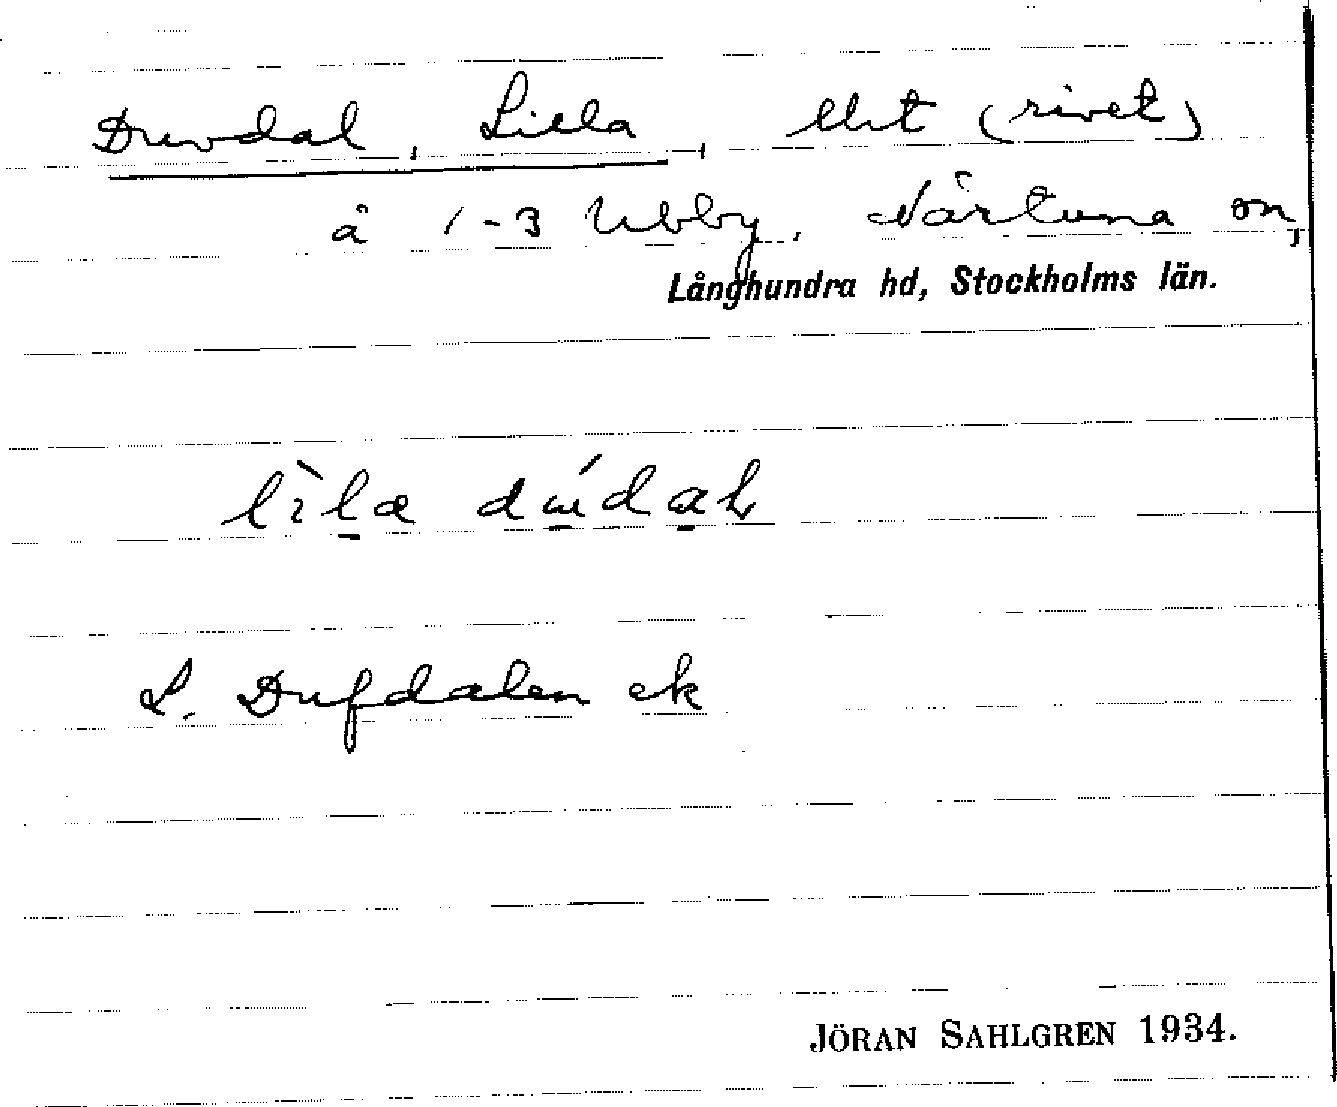 Duvdal, Lilla, lht (rivet)
å 1-3 Ubby. Närtuna sn,
Långhundra hd, Stockholms län.
L. Dufdalen ek
JÖRAN SAHLGREN 1934.